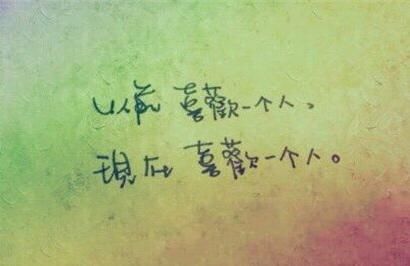 以前 喜歡一个人、
現在 喜歡一个人。